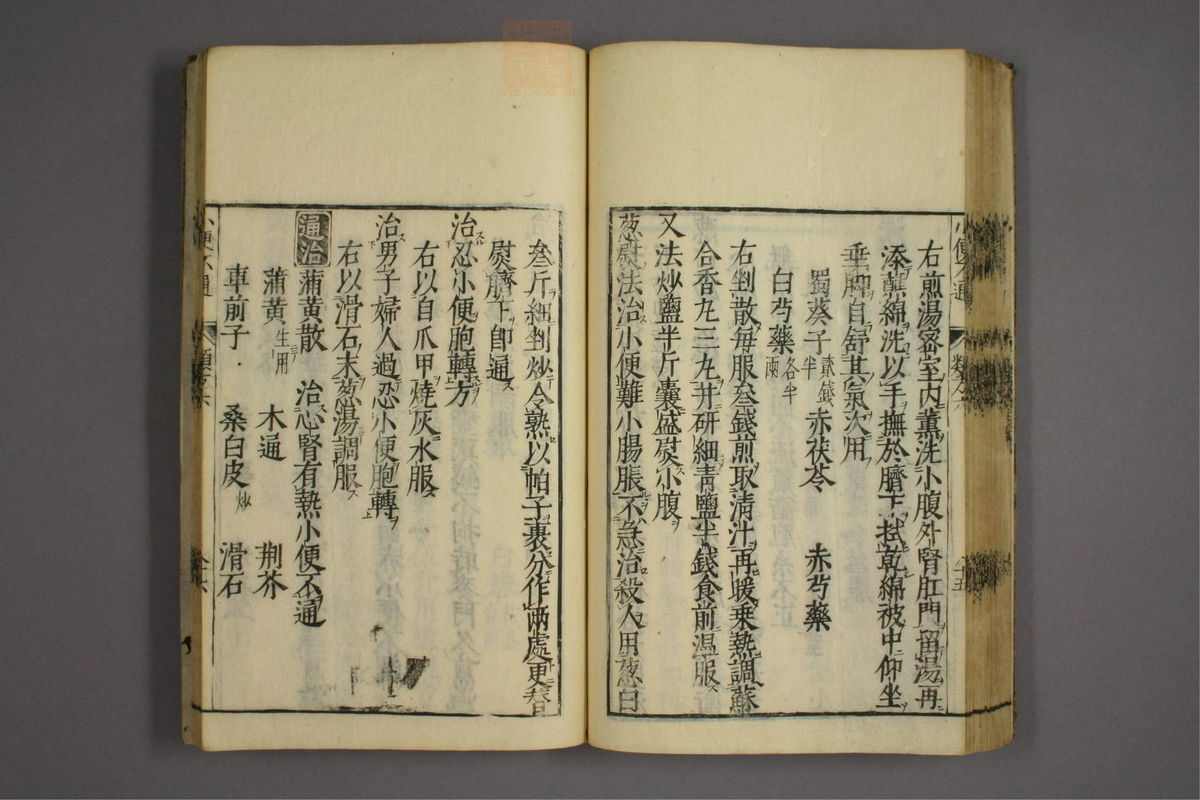 右煎湯密室內薰洗小腹外腎肛門留湯再
添蘸綿洗以手撫於臍下拭乾綿被中仰坐
垂脚自舒其氣次用
蜀葵子貳錢半 赤茯苓 赤芍藥
白芍藥各半兩
右剉散每服叁錢煎取清汁再暖乘熱調蘇
合香丸三丸并研細青鹽半錢食前温服
又法炒鹽半斤囊盛熨小腹
葱熨法治小便難小腸脹不急治殺人用葱白
叁斤細剉炒令熟以帕子裹分作兩處更替
熨臍下即通
治忍小便胞轉方
右以自爪甲燒灰水服
治男子婦人過忍小便胞轉
右以滑石末葱湯調服
通治 蒲黄散 治心腎有熱小便不通
蒲黄生用 木通 荆芥
車前子 桑白皮炒 滑石
小便不通